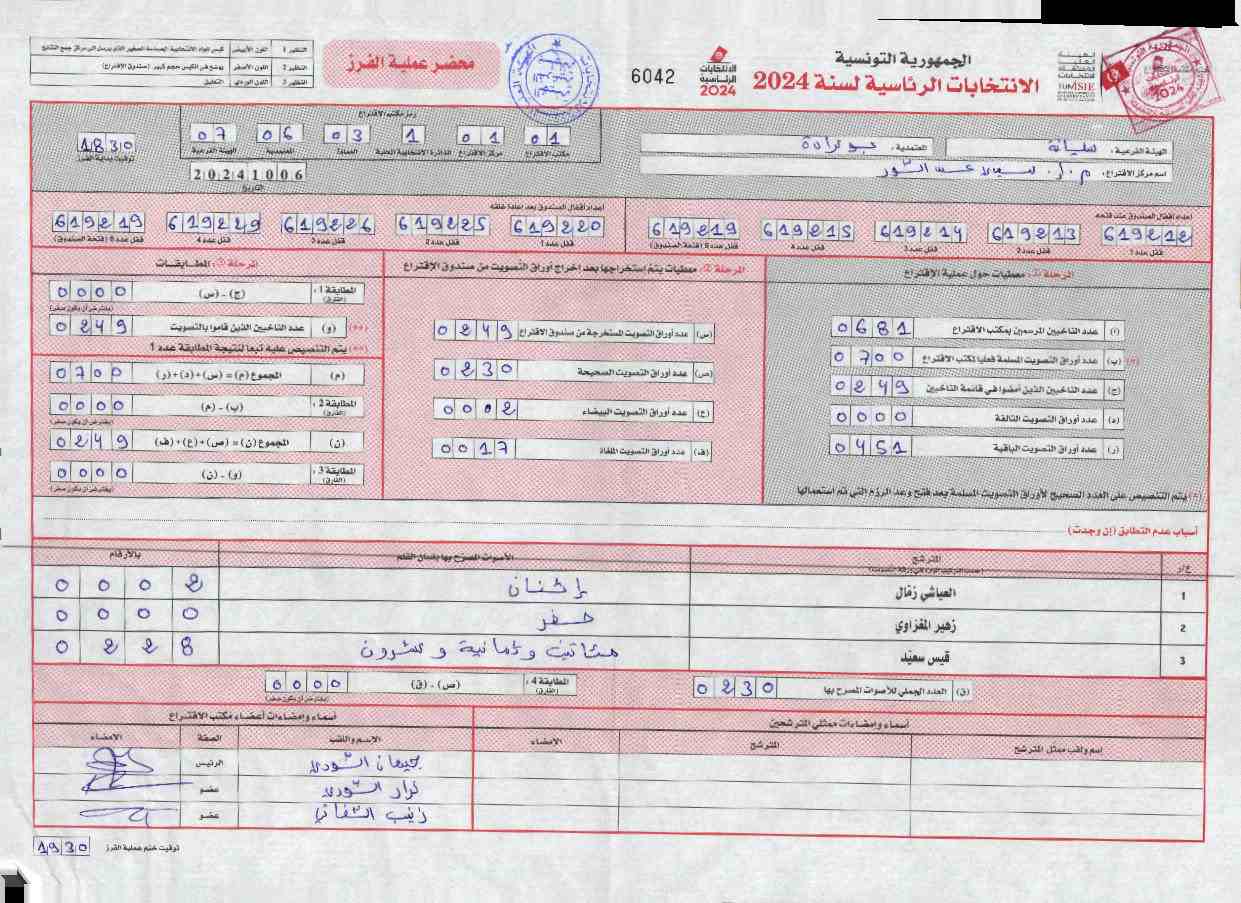 الجمهورية التونسية
الانتخابات الرئاسية لسنة 2024
الانتخابات الرئاسية 2024
6042
محضر عملية الفرز
النظير 1 اللون الأبيض
النظير 2 اللون الأصفر يوضع في الكيس حجم كبير (صندوق الاقتراع)
النظير 3 اللون الوردي التعليق
الهيئة الفرعية: سليانة
المعتمدية: بوعرادة
اسم مركز الاقتراع:
رمز مكتب الاقتراع
01 01 1 03 06 07
مكتب الاقتراع مركز الاقتراع الدائرة الانتخابية المحلية العمادة المعتمدية الهيئة الفرعية
20241006
التاريخ
1830
توقيت بداية الفرز
أعداد أقفال الصندوق عند فتحه
619212 619213 619214 619215 619219
قفل عدد 1 قفل عدد 2 قفل عدد 3 قفل عدد 4 قفل عدد 5 (فتحة الصندوق)
أعداد أقفال الصندوق بعد إعادة غلقه
619220 619225 619226 619229 619219
قفل عدد 1 قفل عدد 2 قفل عدد 3 قفل عدد 4 قفل عدد 5 (فتحة الصندوق)
المرحلة 1: معطيات حول عملية الاقتراع
(أ) عدد الناخبين المرسمين بمكتب الاقتراع 0681
(*) (ب) عدد أوراق التصويت المسلمة فعليا لمكتب الاقتراع 0700
(ج) عدد الناخبين الذين أمضوا في قائمة الناخبين 0249
(د) عدد أوراق التصويت التالفة 0000
(ر) عدد أوراق التصويت الباقية 0451
(*) يتم التنصيص على العدد الصحيح لأوراق التصويت المسلمة بعد فتح وعد الرزم التي تم استعمالها
المرحلة 2: معطيات يتم استخراجها بعد إخراج أوراق التصويت من صندوق الاقتراع
(س) عدد أوراق التصويت المستخرجة من صندوق الاقتراع 0249
(ص) عدد أوراق التصويت الصحيحة 0230
(ع) عدد أوراق التصويت البيضاء 0002
(ف) عدد أوراق التصويت الملغاة 0017
المرحلة 3: المطابقات
المطابقة 1: (الفارق) (ج) - (س) 0000
(يفترض أن يكون صفر)
(**) (و) عدد الناخبين الذين قاموا بالتصويت 0249
(**) يتم التنصيص عليه تبعا لنتيجة المطابقة عدد 1
(م) المجموع (م) = (س) + (د) + (ر) 0700
المطابقة 2: (الفارق) (ب) - (م) 0000
(يفترض أن يكون صفر)
(ن) المجموع (ن) = (ص) + (ع) + (ف) 0249
المطابقة 3: (الفارق) (و) - (ن) 0000
(يفترض أن يكون صفر)
أسباب عدم التطابق (إن وجدت)
ع/ر المترشح الأصوات المصرح بها بلسان القلم بالأرقام
1 العياشي زمّال إثنان 0002
2 زهير المغزاوي صفر 0000
3 قيس سعيّد مئتان وثمانية وعشرون 0228
(ق) العدد الجملي للأصوات المصرح بها 0230
المطابقة 4: (الفارق) (ص) - (ق) 0000
(يفترض أن يكون صفر)
أسماء وإمضاءات ممثلي المترشحين
اسم ولقب ممثل المترشح المترشح الامضاء
أسماء وإمضاءات أعضاء مكتب الاقتراع
الإسم واللقب الصفة الامضاء
الرئيس
عضو
زينب عضو
توقيت ختم عملية الفرز 1930